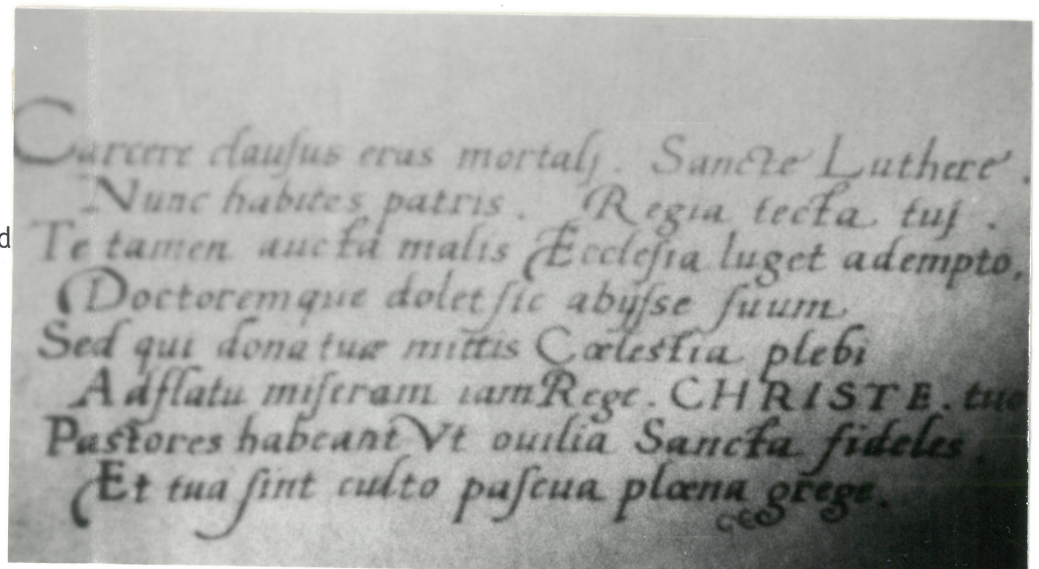 Carcere clauſus eras mortalj. Sancte Luthere.
Nunc habites patris. Regia tecta tuj.
Te tamen aucta malis Eccleſia luget adempto.
Doctoremque dolet ſic abyſſe ſuum
Sed qui dona tuæ mittis Cœleſtia plebi
Adflatu miſeram iam Rege. CHRISTE. tuo
Paſtores habeant Vt ouilia Sancta fideles.
Et tua ſint culto paſcua plœna grege.
d